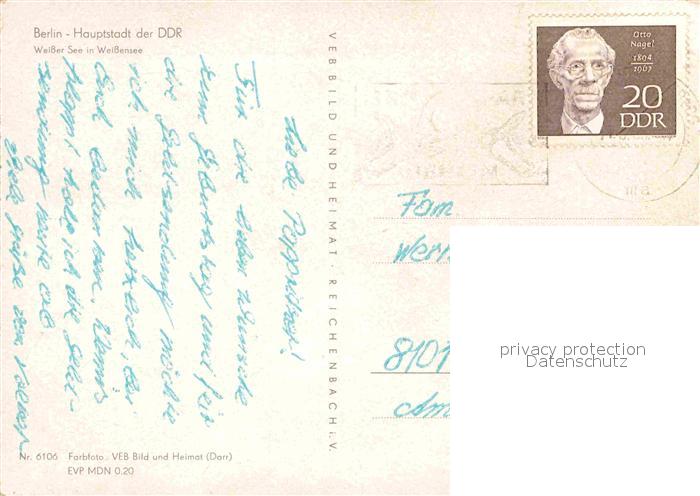 Berlin - Hauptstadt der DDR
Weißer See in Weißensee
Liebe
Für die lieben Wünsche
zum Geburtstag und für
die Geldsendung möchte
ich mich herzlich bei
Euch bedanken. Wenns
klappt hole ich die
heute ab.
Viele Grüße von
Nr. 6106 Farbfoto: VEB Bild und Heimat (Darr)
EVP MDN 0.20
VEB BILD UND HEIMAT · REICHENBACH i. V.
Otto
Nagel
1894
1967
20
DDR
Fam.
Wer
8101
privacy protection
Datenschutz